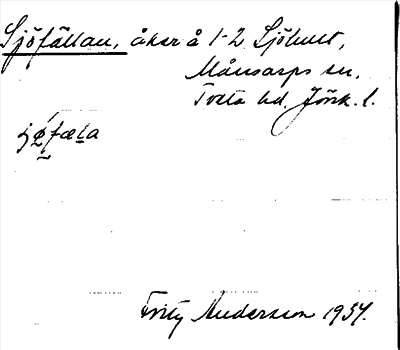 Sjöfällan, åker å 1-2 Sjöhult,
Månsarps sn,
Tveta hd, Jönk. l.
Fritz Andersson 1934.